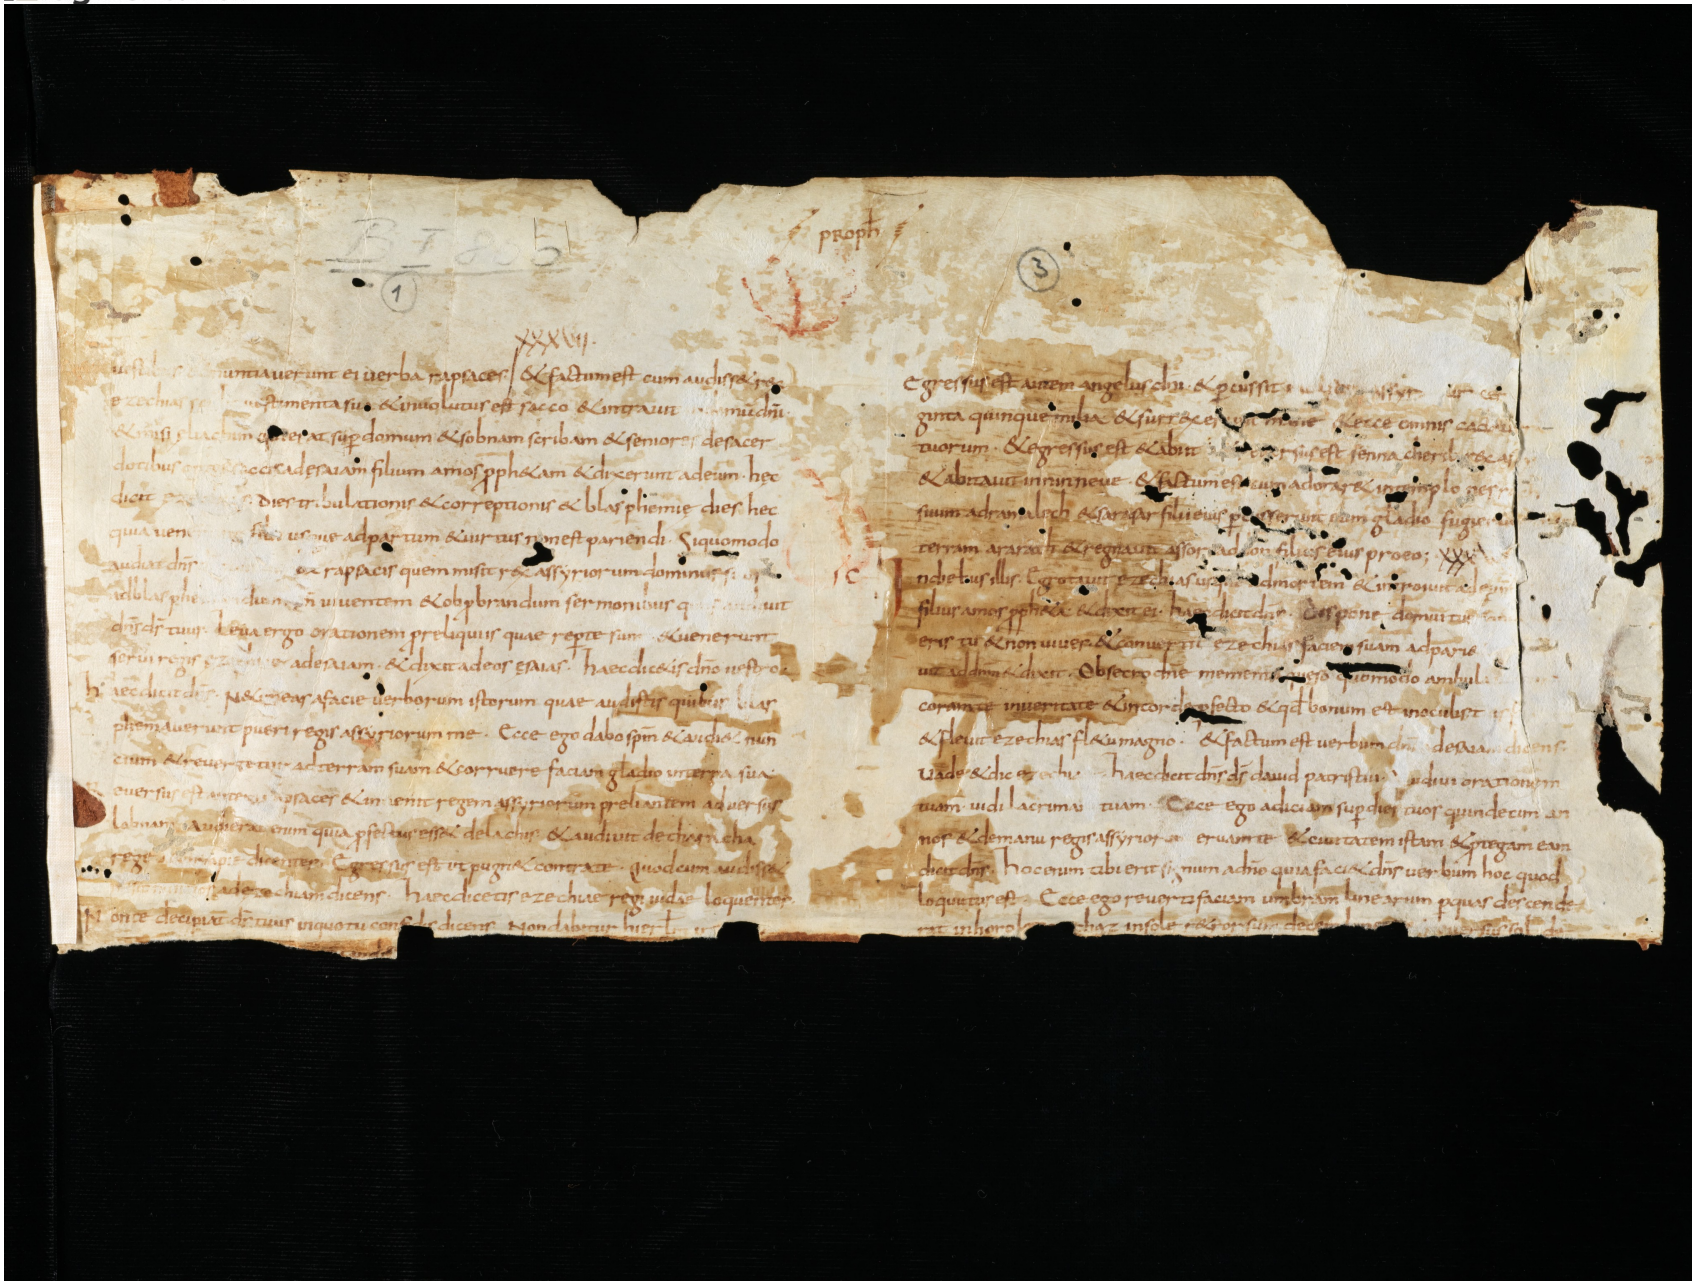 proph̄
B I 805
1
3
XXXVII.
nuntiaverunt ei verba rapsaces & factum est cum audiss& re
ezechias vestimenta sua & involutus est sacco & intravit domū dn̄i
& misi eliachim qui erat sup domum & sobnam scribam & seniores desacer
dotibus saccis adesaiam filium amos pph&am & dixerunt adeum· hec
dicit dies tribulationis & correptionis & blasphemie dies hec
quia ven usque adpartum & virtus non est pariendi· Siquomodo
audiat dn̄s rapsacis quem misit rex assyriorum dominus
adblasphe viventem & obpbrandum sermonibus audivit
dn̄s ds̄ tuus· leva ergo orationem preliquiis quae reperte sunt & venerunt
servi regis adesaiam· & dixit adeos esaias· haec dic&is dn̄o vestro
haec dicit dn̄s· N& timeas afacie verborum istorum quae audistis quibus blas
phemaverunt pueri regis assyriorum me· Ecce ego dabo spm̄ & audi& nun
cium & revertetur ad terram suam & corruere faciam gladio interra sua
eversus est rapsaces & invenit regem assyriorum preliantem adversus
lobnam audierat enim quia pfectus ess& delachis· & audivit de tharacha
rege dicentes· Egressus est ut pugn& contra te· quod cum audiss&
adezechiam dicens· haec dicetis ezechiae regi iudae loquentes
Non te decipiat ds̄ tuus inquo tu confidis dicens· Non dabitur hierl̄
Egressus est autem angelus dn̄i· & pcussit
ginta quinque milia· & surr&ex mane & ecce omnis
tuorum· & egressus est & abiit reversus est sennacherib
& abitavit in ninneve· & factum est cum adorar& intemplo
suum adramalech & sarasar filii eius pcusserunt eum gladio· fuger
terram ararath & regnavit assor filius eius pro eo; XXX
Ndiebus illis· Egrotavit ezechias usque admortem & introivit adeum
filius amos pph&a & dixit ei· haec dicit dn̄s· Dispone domui tue
eris tu & non vives· & convertit ezechias faciem suam ad parie
ad dn̄m & dixit· Obsecro dn̄e memento queso quomodo ambul
coram te inveritate & incorde pfecto & qđ bonum est in oculis t
& flevit ezechias fl&u magno· & factum est verbum dn̄i adesaiam dicens·
Vade & dic ezechie haec dicit dn̄s ds̄ david patris tui· audivi orationem
tuam· vidi lacrimas tuam· Ecce ego adiciam sup dies tuos quindecim an
nos & demanu regis assyrior eruam te & civitatem istam & ptegam eam
dicit dn̄s· hoc enim tibi erit signum adn̄o quia faci& dn̄s verbum hoc quod
loquutus est· Ecce ego reverti faciam umbram linearum pquas descende
rit inhorol insole r&rorsum